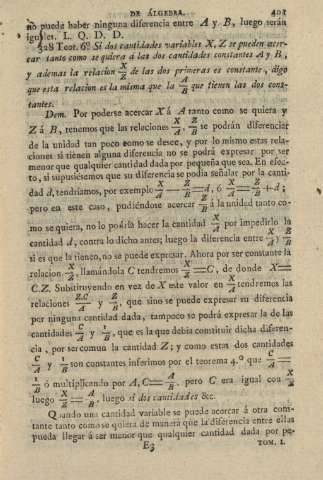 DE ÁLGEBRA. 401
no pueda haber ninguna diferencia entre A y B, luego serán
iguales. L. Q. D. D.
328 Teor. 6º Si dos cantidades variables X, Z se pueden acer-
car tanto como se quiera a las dos cantidades constantes A y B,
y ademas la relacion X/Z de las dos primeras es constante, digo
que esta relacion es la misma que la A/B que tienen las dos cons-
tantes.
Dem. Por poderse acercar X á A tanto como se quiera y
Z á B, tenemos que las relaciones X/A, Z/B se podrán diferenciar
de la unidad tan poco como se desee, y por lo mismo estas rela-
ciones si tienen alguna diferencia no se podrá expresar por ser
menor que qualquier cantidad dada por pequeña que sea. En efec-
to, si supusiésemos que su diferencia se podia señalar por la canti-
dad d, tendríamos, por exemplo X/A — Z/B = d, ó X/A = Z/B + d;
pero en este caso, pudiéndose acercar Z/B á la unidad tanto co-
mo se quiera, no lo podria hacer la cantidad X/A por impedirlo la
cantidad d, contra lo dicho antes; luego la diferencia entre X/A y Z/B
si es que la tienen, no se puede expresar. Ahora por ser constante la
relacion X/Z, llamándola C tendremos X/Z = C, de donde X =
C.Z. Substituyendo en vez de X este valor en X/A tendremos las
relaciones Z.C/A y Z/B, que sino se puede expresar su diferencia
por ninguna cantidad dada, tampoco se podrá expresar la de las
cantidades C/A y 1/B, que es la que debia constituir dicha diferen-
cia, por ser comun la cantidad Z; y como estas dos cantidades
C/A y 1/B son constantes inferimos por el teorema 4.º que C/A =
1/B ó multiplicando por A, C = A/B. pero C era igual con X/Z
luego X/Z = A/B, luego si dos cantidades &c.
Quando una cantidad variable se puede acercar á otra cons-
tante tanto como se quiera de manera que la diferencia entre ellas
pueda llegar á ser menor que qualquier cantidad dada por pe-
E3 TOM. I.